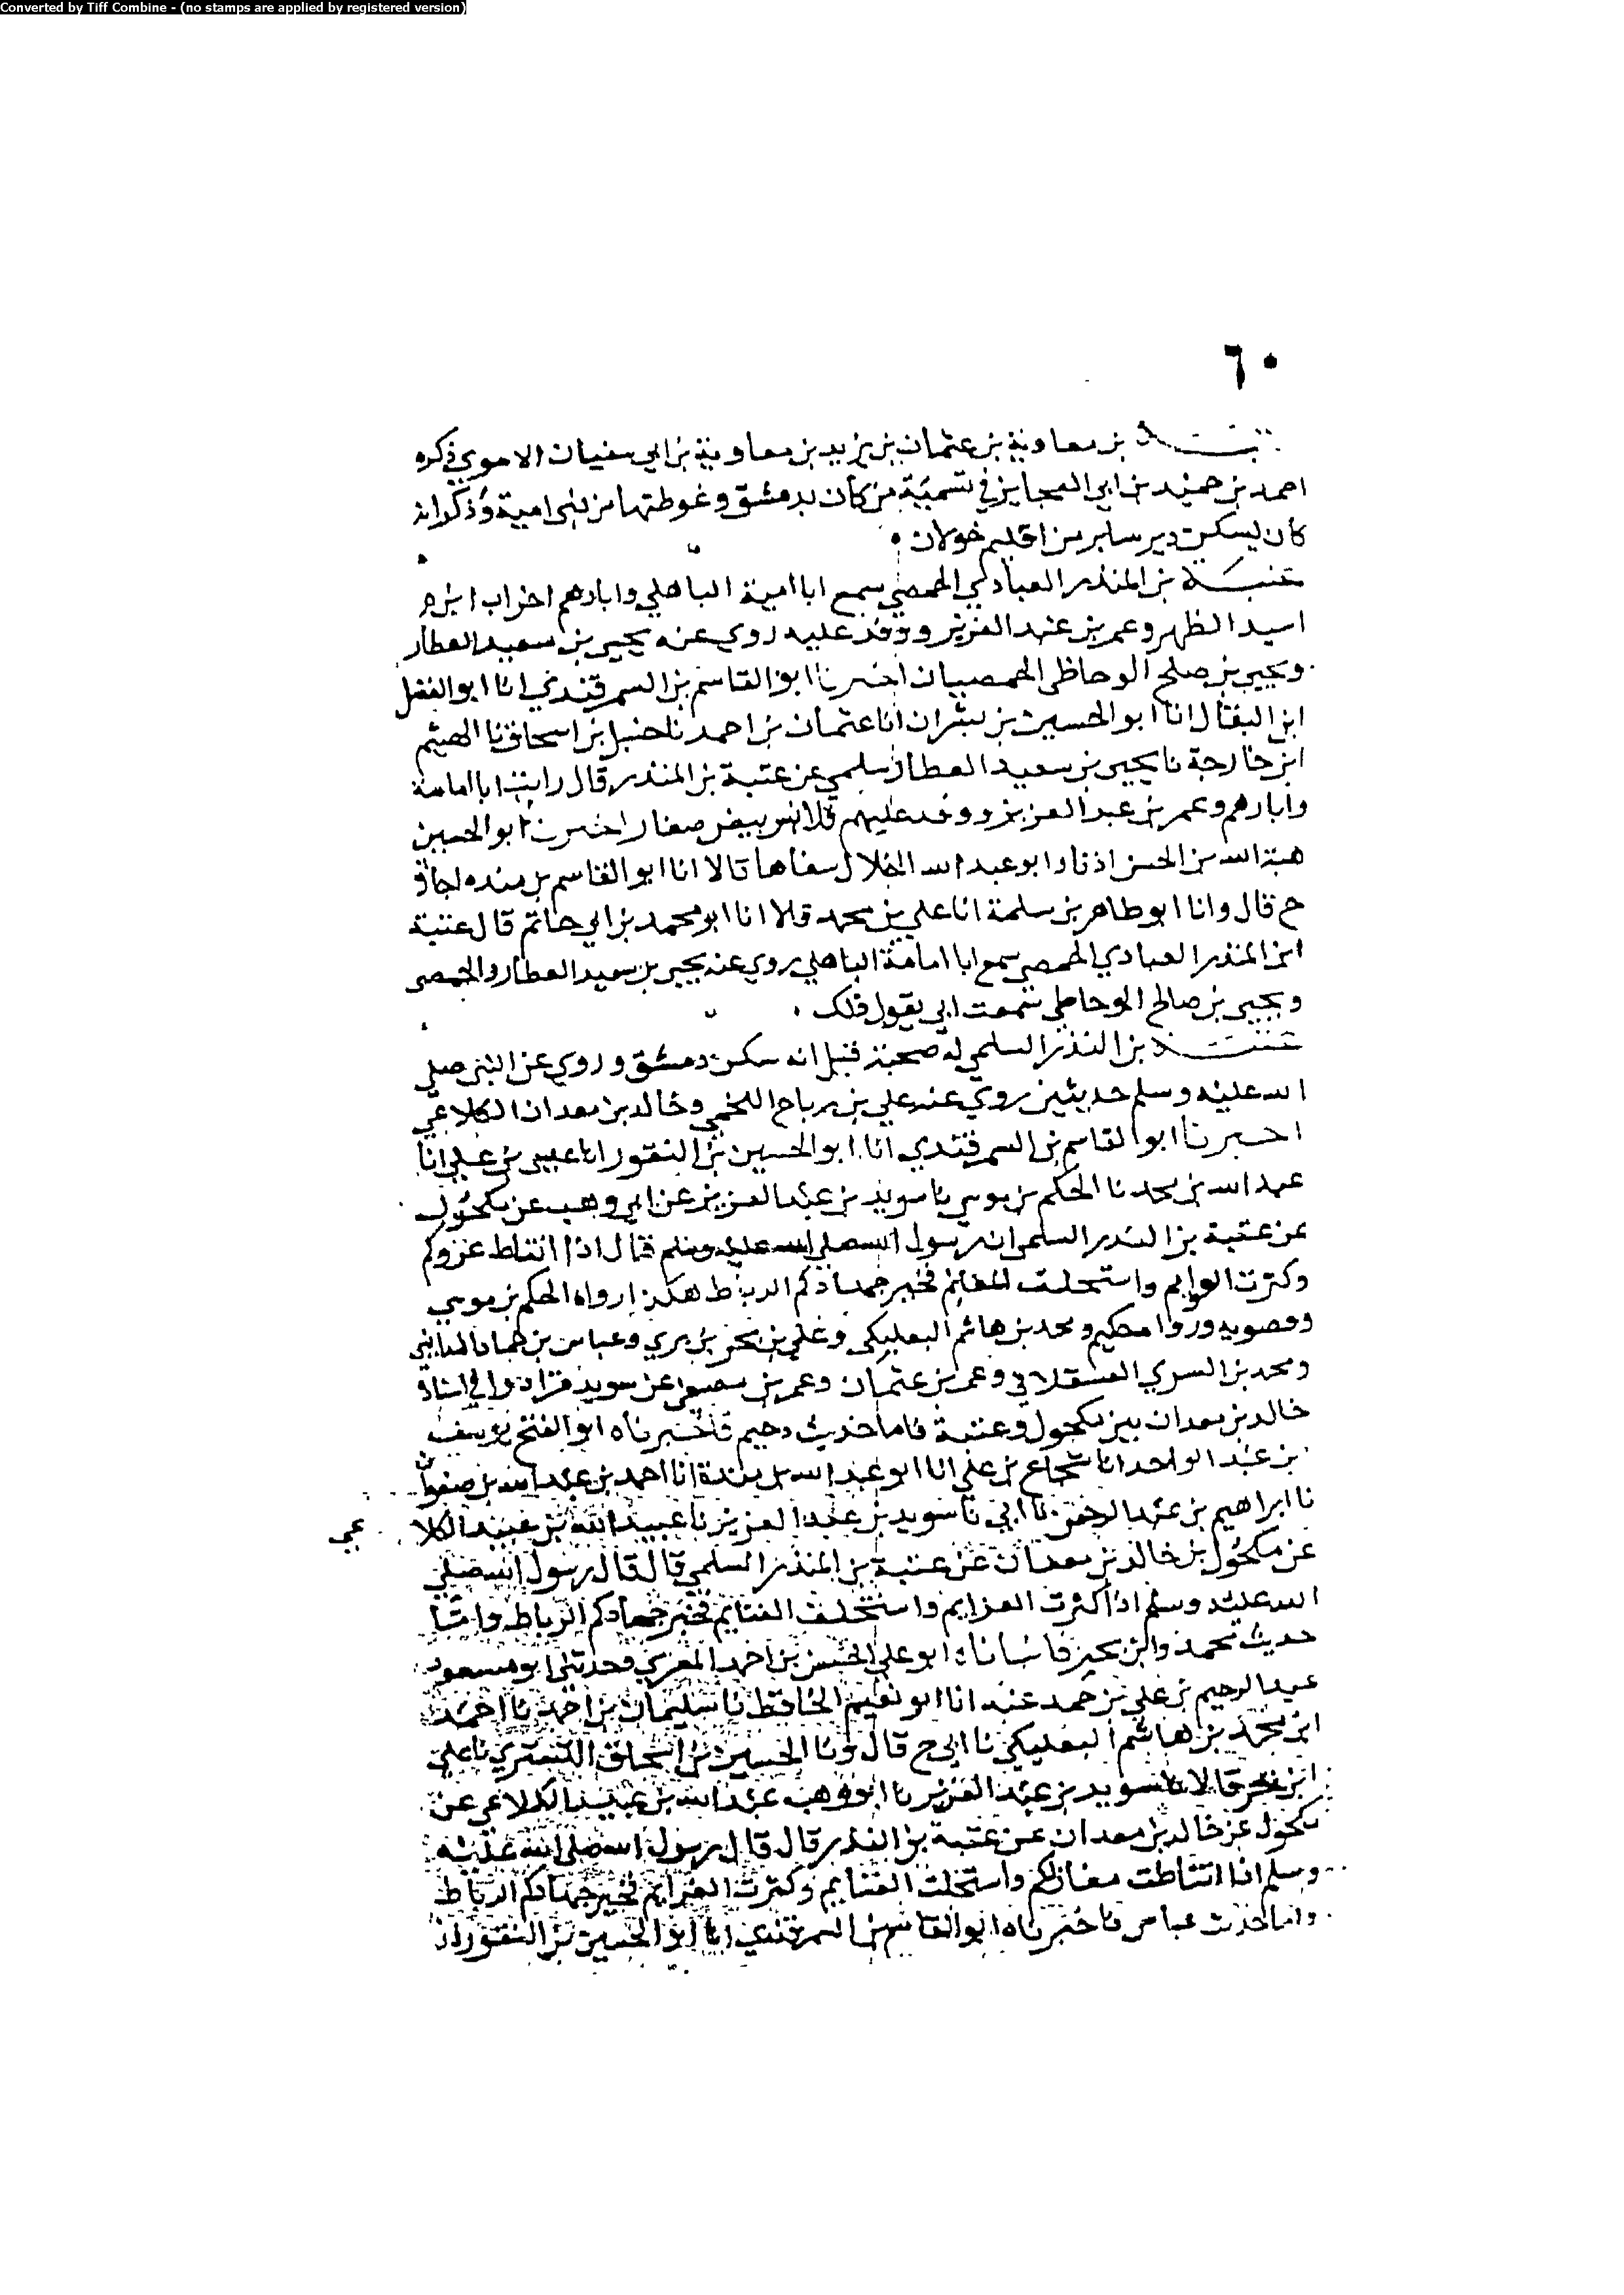 Converted by Tiff Combine - (no stamps are applied by registered version)
٦٠
عتبة بن معاوية بن عثمان بن يزيد بن معاوية بن ابي سفيان الاموي ذكره
احمد بن حميد بن ابي العجايز في تسمية من كان بدمشق وغوطتها من بني امية وذكر انه
كان يسكن دير سابر من اقليم خولان
عتبة بن المنذر العبادي الحمصي سمع ابا امية الباهلي وابا رهم احزاب ابن
اسيد الظهر وعمر بن عبد العزيز ووفد عليه روي عنه يحيى بن سعيد العطار
ويحيى بن صلح الوحاظي الحمصيان اخبرنا ابو القاسم بن السمرقندي انا ابو الفضل
ابن البقال انا ابو الحسين بن بشران انا عثمان بن احمد نا حنبل بن اسحاق نا الهيثم
ابن خارجة نا يحيى بن سعيد العطار سلمي عن عتبة بن المنذر قال رايت ابا امامة
وابا رهم وعمر بن عبد العزيز ووفد عليهم قلانس بيض صغار اخبرنا ابو الحسين
هبة الله بن الحسن اذنا وابو عبد الله الخلال سفاها قالا انا ابو القاسم بن منده اجازة
ح قال وانا ابو طاهر بن سلمة انا علي بن محمد قالا انا ابو محمد بن ابي حاتم قال عتبة
ابن المنذر العبادي الحمصي سمع ابا امامة الباهلي روي عنه يحيى بن سعيد العطار والحمصي
ويحيى بن صالح الوحاظي سمعت ابي يقول ذلك
عتبة بن الندر السلمي له صحبة قيل انه سكن دمشق وروي عن النبي صلي
الله عليه وسلم حديثين روي عنه علي بن رباح اللخمي وخالد بن معدان الكلاعي
اخبرنا ابو القاسم بن السمرقندي انا ابو الحسين بن النقور انا عيسى بن علي انا
عبد الله بن محمد نا الحكم بن موسي نا سويد بن عبد العزيز عن ابي وهب عن مكحول
عن عتبة بن الندر السلمي ان رسول الله صلي الله عليه وسلم قال اذا انتاط غزوكم
وكثرت العزايم واستحلت الغنايم فخير جهادكم الرباط هكذا رواه الحكم بن موسي
ومحمد بن هاشم البعلبكي وعلي بن بحر بن بري وعباس بن
ومحمد بن السري العسقلاني وعمر بن عثمان وعمر بن عن سويد فزادوا في اسناده
خالد بن معدان بين مكحول وعتبة فاما حديث دحيم فاخبرناه ابو الفتح يوسف
بن عبد الواحد انا شجاع بن علي انا ابو عبد الله بن مندة انا احمد بن عبد الله بن صفوان
نا ابراهيم بن عبد الرحمن نا ابي نا سويد بن عبد العزيز نا عبيد الله بن عبيد الكلاعي
عن مكحول بن خالد بن معدان عن عتبة بن المنذر السلمي قال قال رسول الله صلي
الله عليه وسلم اذا كثرت العزايم واستحلت الغنايم فخير جهادكم الرباط واما
حديث محمد وابن بحر فانبأناه ابو علي الحسن بن احمد المقري وحدثني ابو مسعود
عبد الرحيم بن علي بن حمد عنه انا ابو نعيم الحافظ نا سليمان بن احمد نا احمد
ابن محمد بن هاشم البعلبكي نا ابي ح قال ونا الحسين بن اسحاق التستري نا علي
ابن بحر قالا نا سويد بن عبد العزيز نا ابو وهب عبد الله بن عبيد الكلاعي عن
مكحول عن خالد بن معدان عن عتبة بن الندر قال قال رسول الله صلي الله عليه
وسلم اذا انتاطت مغازيكم واستحلت الغنايم وكثرت العزايم فخير جهادكم الرباط
واما حديث عباس فاخبرناه ابو القاسم بن السمرقندي انا ابو الحسين بن النقور انا